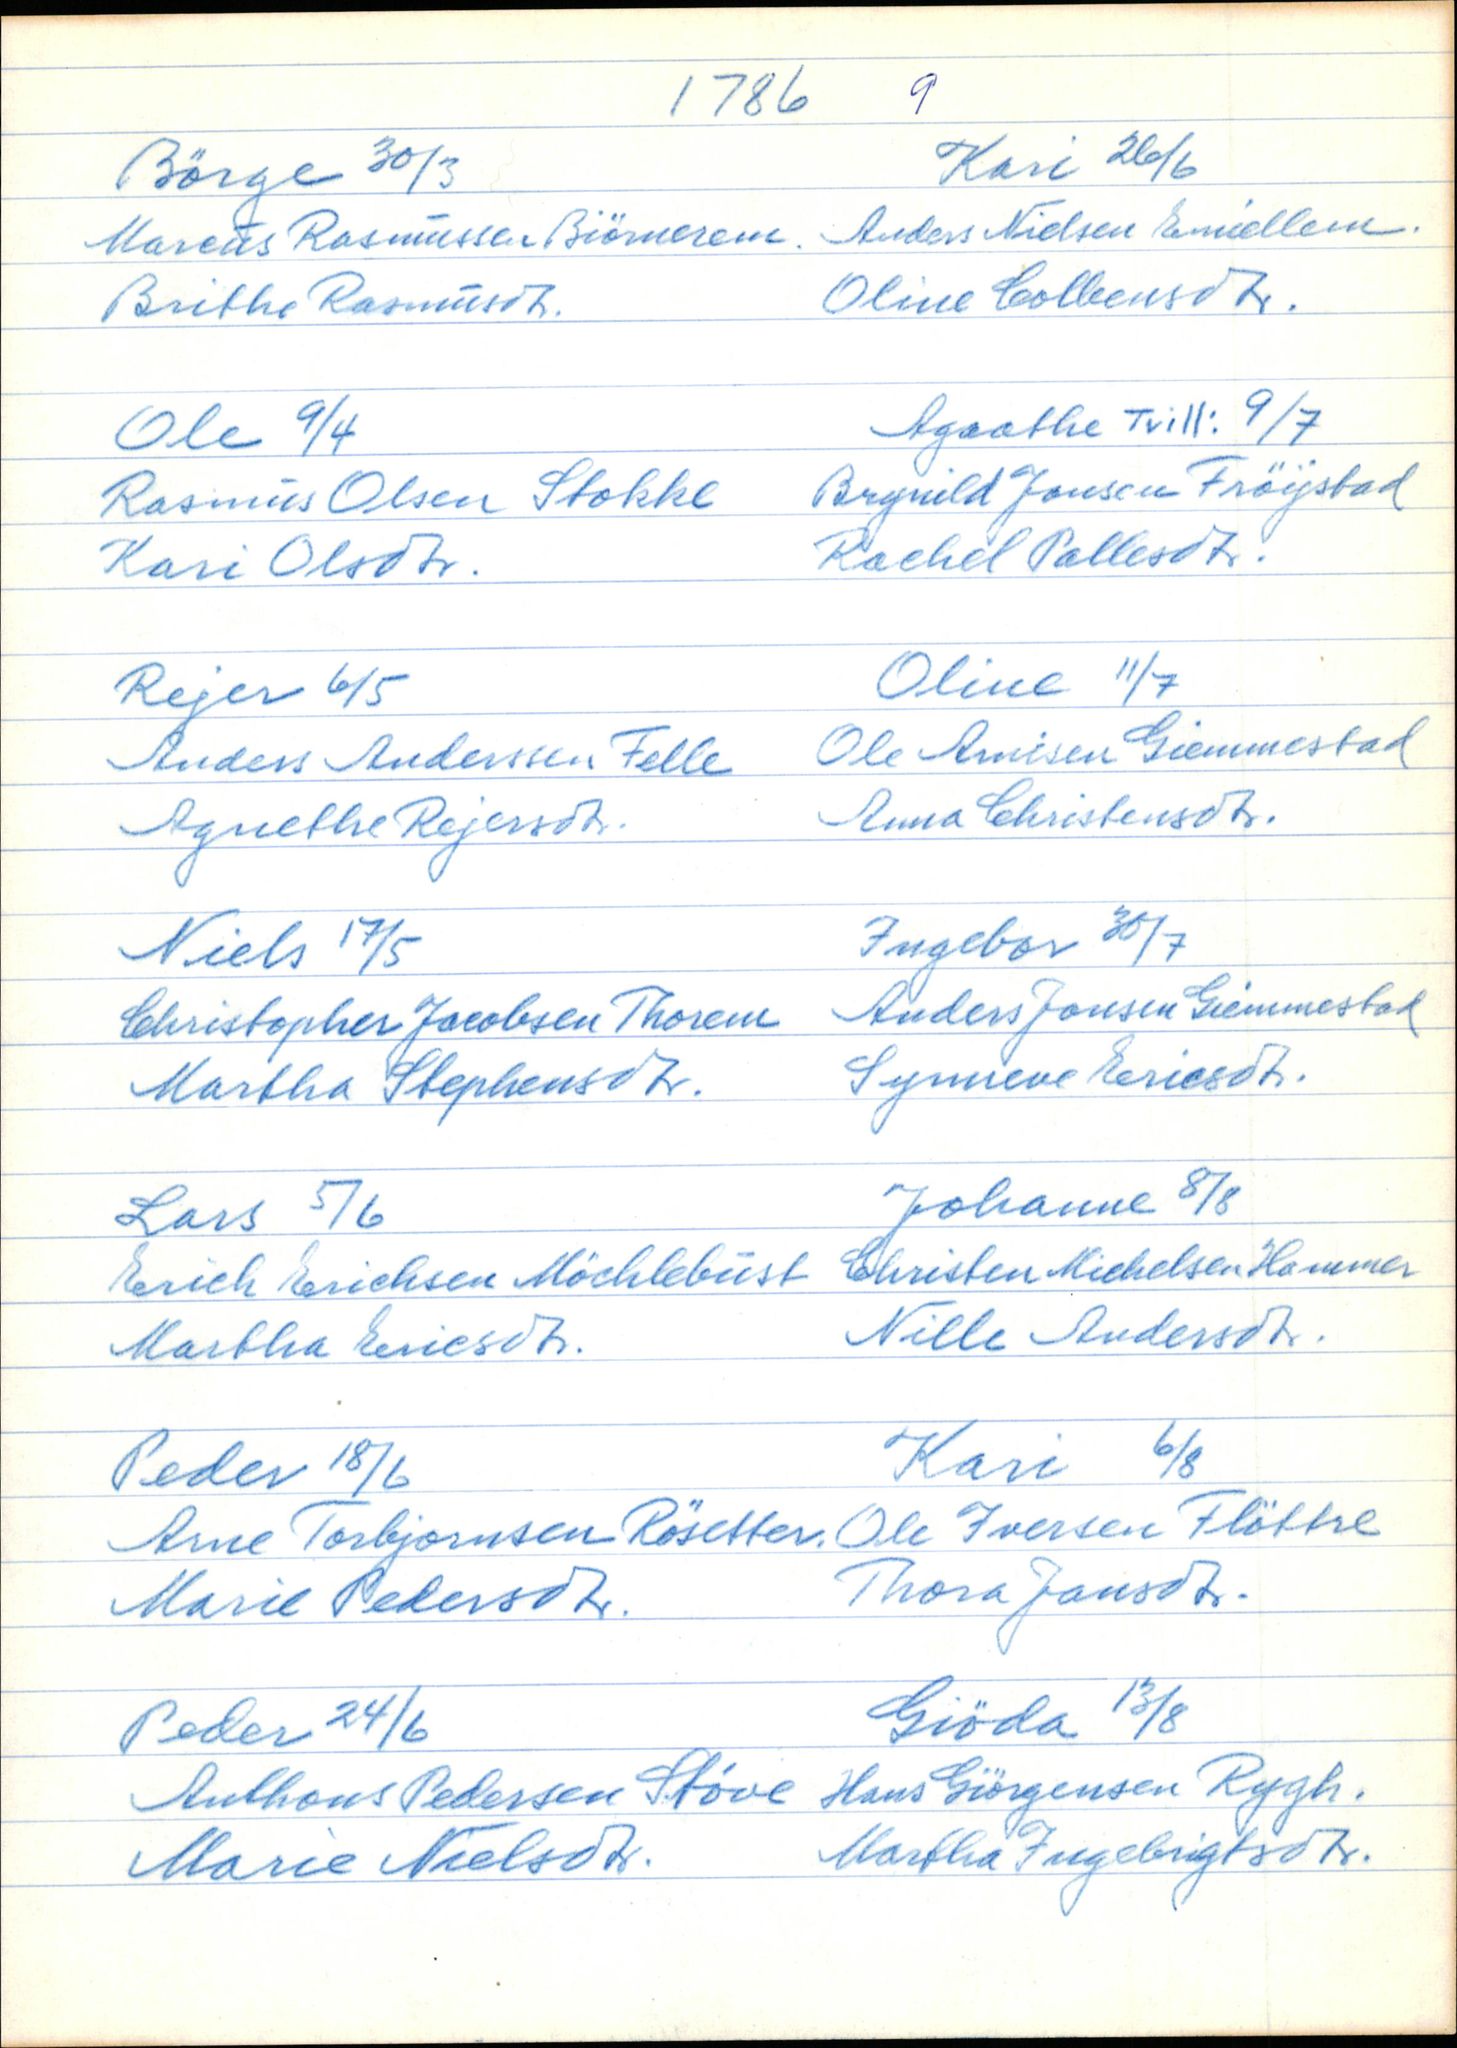 1786 9
Börge 30/3
Marcus Rasmussen Biörnerem.
Brithe Rasmusdtr.
Ole 9/4
Rasmus Olsen Stokke
Kari Olsdtr.
Rejer 6/5
Anders Anderssen Felle
Agnethe Rejersdtr.
Niels 17/5
Christopher Jacobsen Thorem
Martha Stephensdtr.
Lars 5/6
Erich Erichsen Möchlebust
Martha Ericsdtr.
Peder 18/6
Arne Torbjornsen Rösetter.
Marie Pedersdtr.
Peder 24/6
Anthons Pedersen Støve
Marie Nielsdtr.
Kari 26/6
Anders Nielsen Emiellem.
Oline Colbensdtr.
Agaathe Tvill: 9/7
Brynild Jonsen Fröystad
Rachel Pallesdtr.
Oline 11/7
Ole Arnisen Giemmestad
Anna Christensdtr.
Ingebor 30/7
Anders Jonsen Giemmestad
Synneve Ericsdtr.
Johanne 8/8
Christen Michelsen Hammer
Nille Andersdtr.
Kari 6/8
Ole Iversen Flöttre
Thora Jansdtr.
Giöda 13/8
Hans Giörgensen Rygh.
Martha Ingebrigtsdtr.